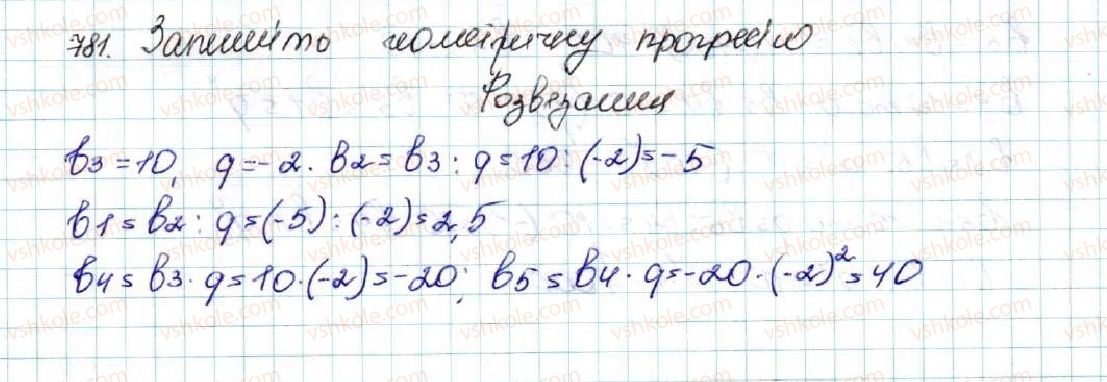 781. Запишіть геометричну прогресію
Розв'язання
b3 = 10, q = -2. b2 = b3 : q = 10 : (-2) = -5
b1 = b2 : q = (-5) : (-2) = 2,5
b4 = b3 · q = 10 · (-2) = -20; b5 = b4 · q = -20 · (-2)² = 40